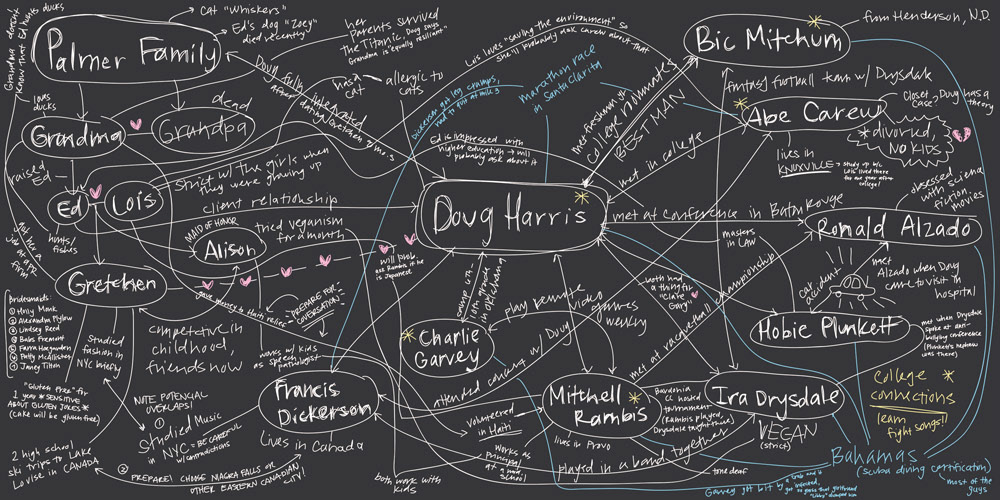 Palmer Family
Cat "Whiskers"
Ed's dog "Zoey"
died recently
her
parents survived
the Titanic, Doug says
Grandma is "equally resilient"
Grandma doesn't
know that Ed hunts
ducks
loves
ducks
Grandma
dead
Grandpa
raised
Ed
Ed
Lois
hunts/
fishes
Strict w/ the girls when
they were growing up
client relationship
MAID OF HONOR
Alison
tried veganism
for a month
got her a
job at a PR
firm
Gretchen
gave money to Haiti relief
PREPARE FOR
CONVERSATION
will prob.
ask Rambis if he
is Japanese
Bridesmaids:
① Holly Monk
② Alexandra Mylow
③ Lindsey Reed
④ Babs Fremont
⑥ Patty McAllister
⑦ Janey Titton
Studied
fashion in
NYC briefly
competitive in
childhood,
friends now
"Gluten Free" for
1 year *SENSITIVE
ABOUT GLUTEN JOKES*
(cake will be gluten free)
NOTE POTENTIAL
OVERLAPS!
①
Studied Music
in NYC = BE CAREFUL
w/ contradictions
2 high school
ski trips to Lake
Louise in CANADA
② PREPARE! CHOOSE NIAGRA FALLS OR
OTHER EASTERN CANADIAN
CITY!
works w/ kids
as speech
pathologist
Francis
Dickerson
Lives in Canada
both work with
kids
Doug fully introduced
after dating Gretchen 4 mo.s
has a
cat
allergic to
cats
Lois loves "saving the environment" so
she'll probably ask Carew about that
Dickerson got leg cramps,
had to quit at mile 3
marathon race
in Santa Clarita
Ed is impressed with
higher education → will
probably ask about it
met freshman yr.
College roommates
BEST MAN
met in college
Doug Harris
met at conference in Baton Rouge
Bic Mitchum
from Henderson, N.D.
fantasy football team w/ Drysdale
Abe Carew
Closet
case?
Doug has a
theory
*divorced,
NO KIDS
lives in
KNOXVILLE
study up b/c
Lois lived there
for one year after
college!
obsessed
with science
fiction
movies
Ronald Alzado
masters
in LAW
car
accident
met
Alzado when Doug
came to visit in
hospital
Hobie Plunkett
met when Drysdale
spoke at anti-
bullying conference
(Plunkett's nephew
was there)
both had
a thing for
"Clare
Guiyn"
met at racquetball championship
Charlie
Garvey
play remote video
games
weekly
attended culinary w/ Doug
Mitchell
Rambis
lives in Provo
Bardonia
CC hosted
tournament
(Rambis played,
Drysdale taught there)
Ira Drysdale
VEGAN
(strict)
played in a band together
tone deaf
volunteered
in Haiti
works as
principal
at a mid.
school
Garvey got bit by a crab and it
got infected,
College *
connections
learn
fight songs!!
Bahamas
(scuba diving certification)
most of
the guys